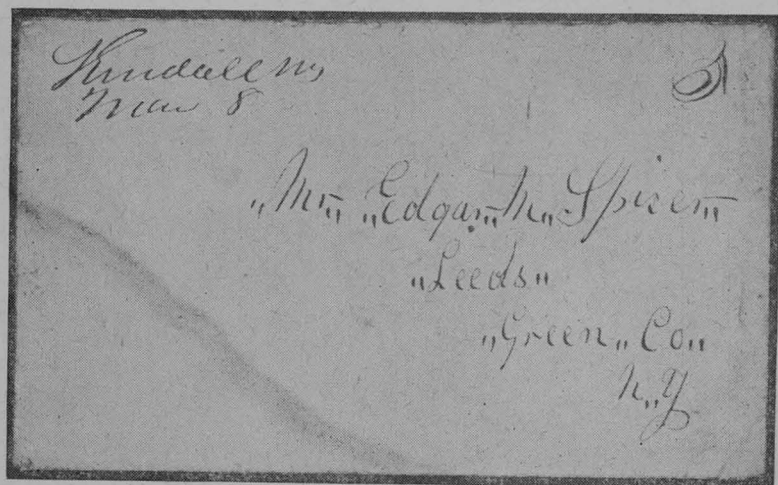 Kendall Ms
Mar 8
3
„Mr„ „Edgar„ M„ Spicer„
„Leeds„
„Green„ Co„
N„Y